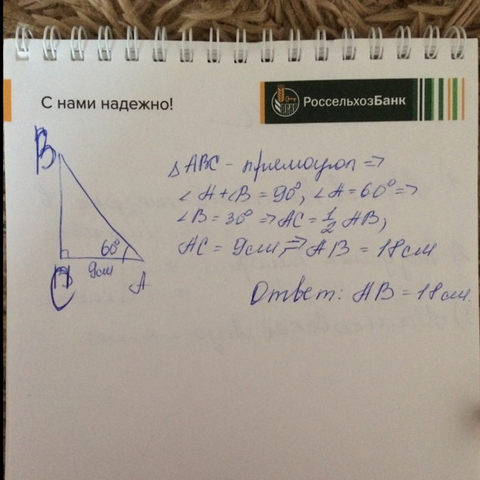 С нами надежно!
РоссельхозБанк
B
60°
9см
A
C
△ABC - прямоугол =>
∠A+∠B = 90°, ∠A = 60° =>
∠B = 30° => AC = 1/2 AB,
AC = 9см, => AB = 18 см
Ответ: AB = 18 см.